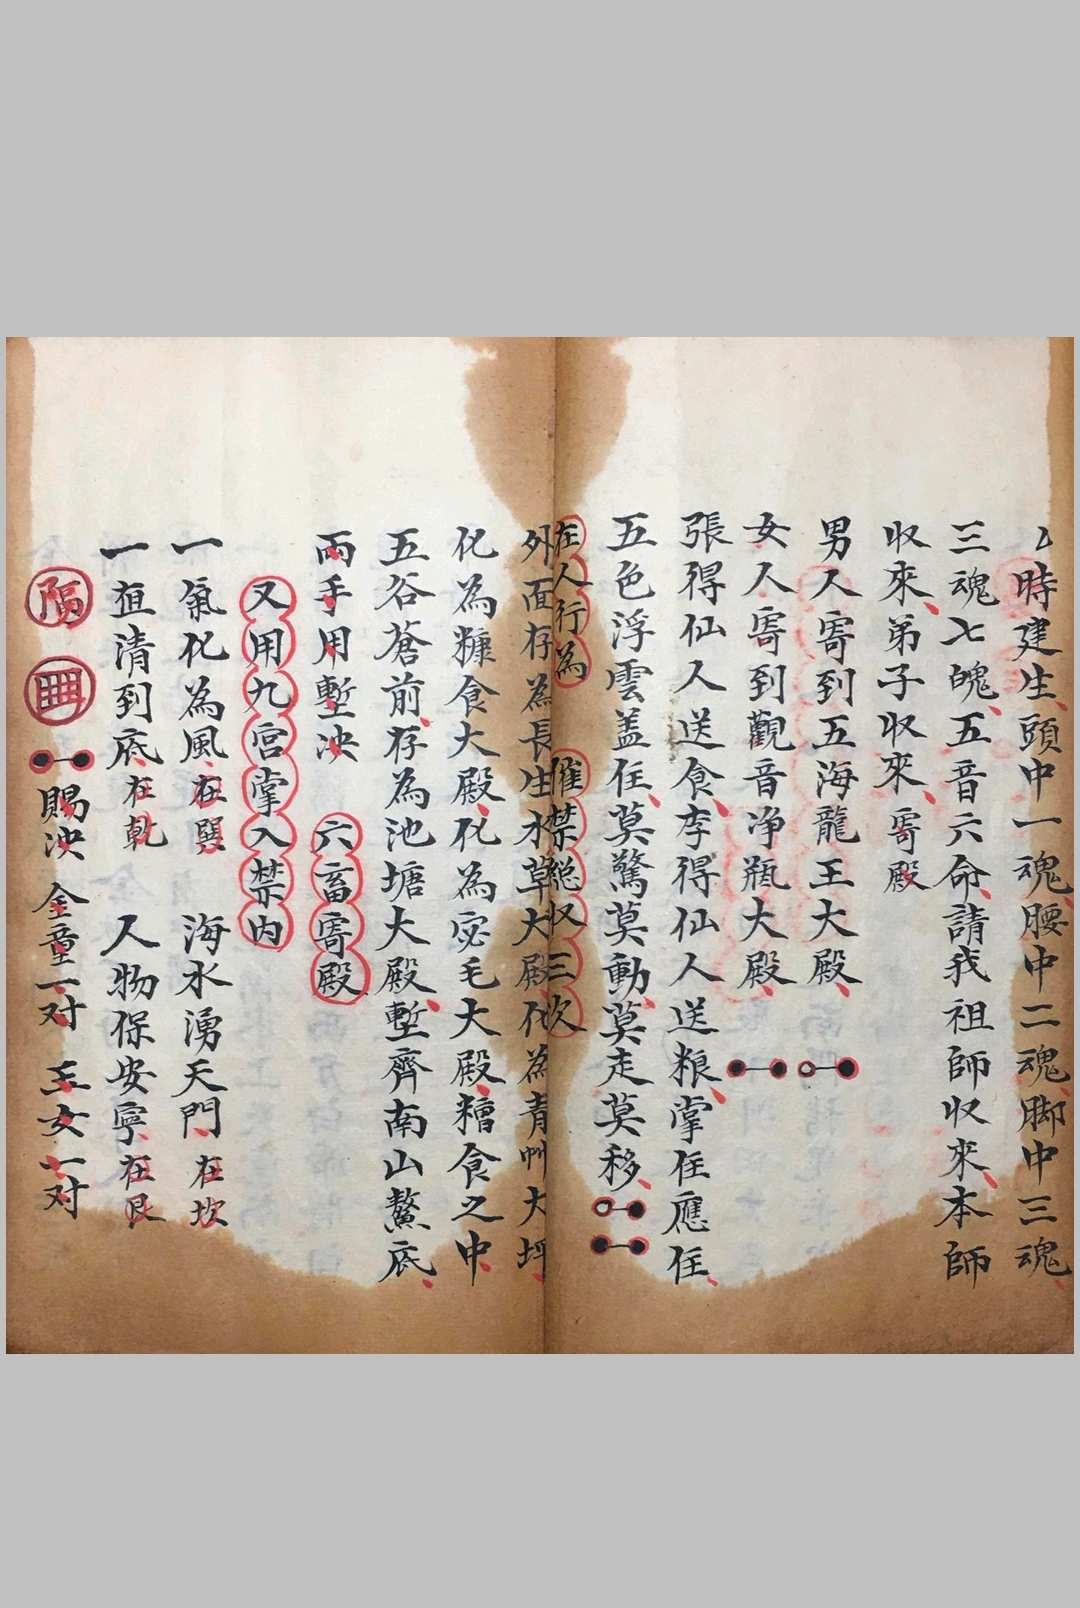 時建生頭中一魂腰中二魂脚中三魂
三魂七魄五音六命請我祖師收來本師
收來弟子收來寄殿
男人寄到五海龍王大殿
女人寄到觀音净瓶大殿
張得仙人送食李得仙人送粮掌住應住
五色浮雲盖住莫驚莫動莫走莫移
在人行為 催禁総収三次
外面存為長生水草大殿化為青艸大坪
化為糠食大殿化為宻毛大殿糟食之中
五谷蒼前存為池塘大殿塹齊南山鰲底
兩手用塹泱 六畜寄殿
又用九宮掌入禁内
一氣化為風在巽 海水湧天門在坎
一 清到底在乾 人物保安寧在艮
隔 賜泱 金童一对 玉女一对